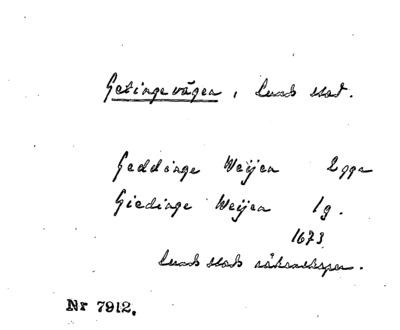 Getingevägen, Lunds stad.
Geddinge Weijen 2 ggr
Giedinge Weijen 1 g.
1673
Lunds stads räkenskaper.
Nr 7912.